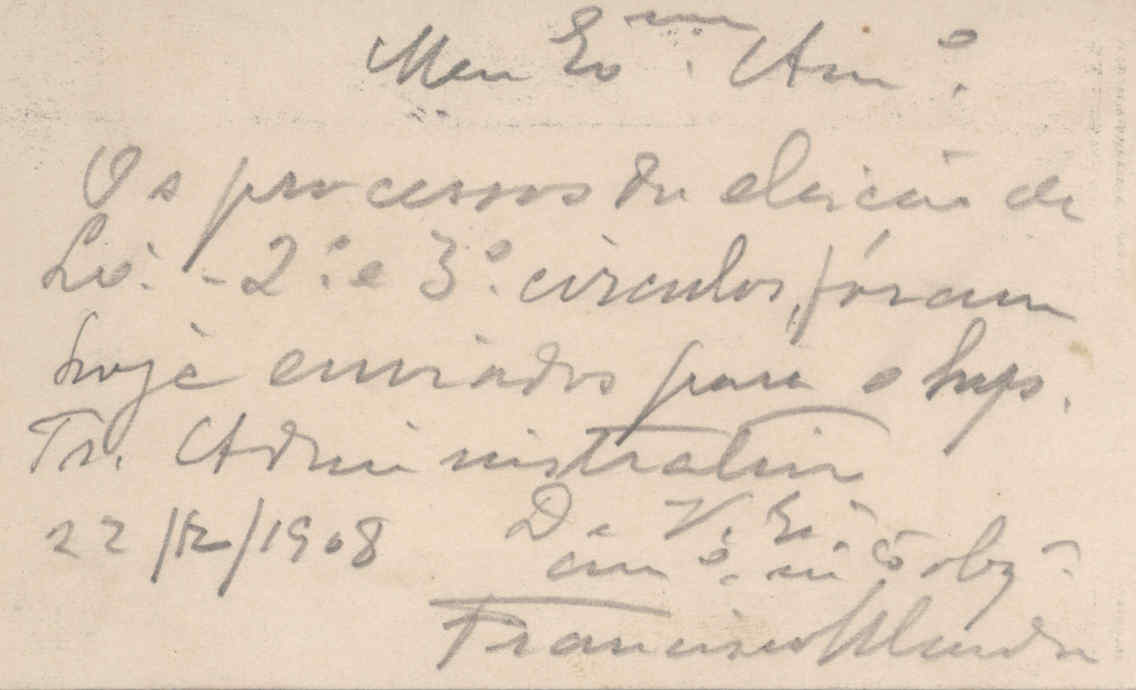 Meu Ex.mo Am.º
Os processos da eleição de
Lx.ª - 2.º e 3.º circulos, fóram
hoje enviados para o Sup.
Tr. Administrativo
22/12/1908 De V. Ex.ª
am.º m.to obg.º
Francisco